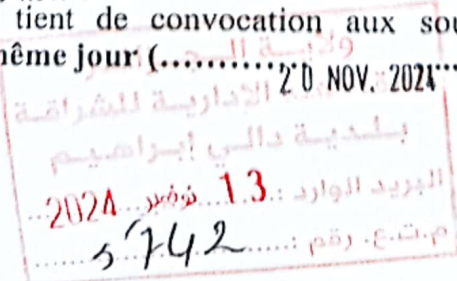 tient de convocation aux sou
nême jour (..............
20 NOV. 2024
ولاية الجزائر
الإدارية للشراقة
بلدية دالي إبراهيم
البريد الوارد : 13 نوفمبر 2024
م.ت.ع. رقم : 5742